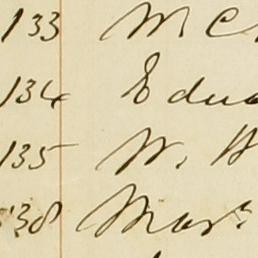 133 W. C
134 Edwa
135 W. H
138 Mary